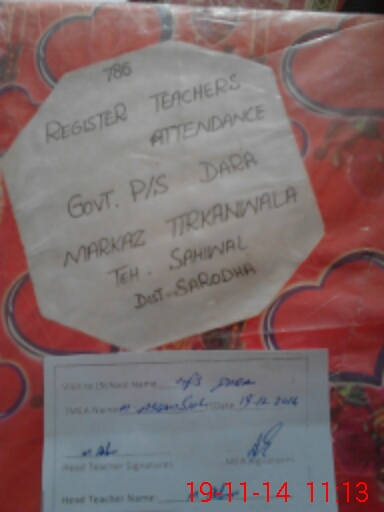 786
REGISTER TEACHERS
ATTENDANCE
GOVT. P/S DARA
MARKAZ TIRKANWALA
TEH. SAHIWAL
DIST-SARODHA
Visit to (School Name P/S DARA
(MEA Name M Date 19-12
Head Teacher Signatures MEA Signatures
Head Teacher Name
19-11-14 11:13